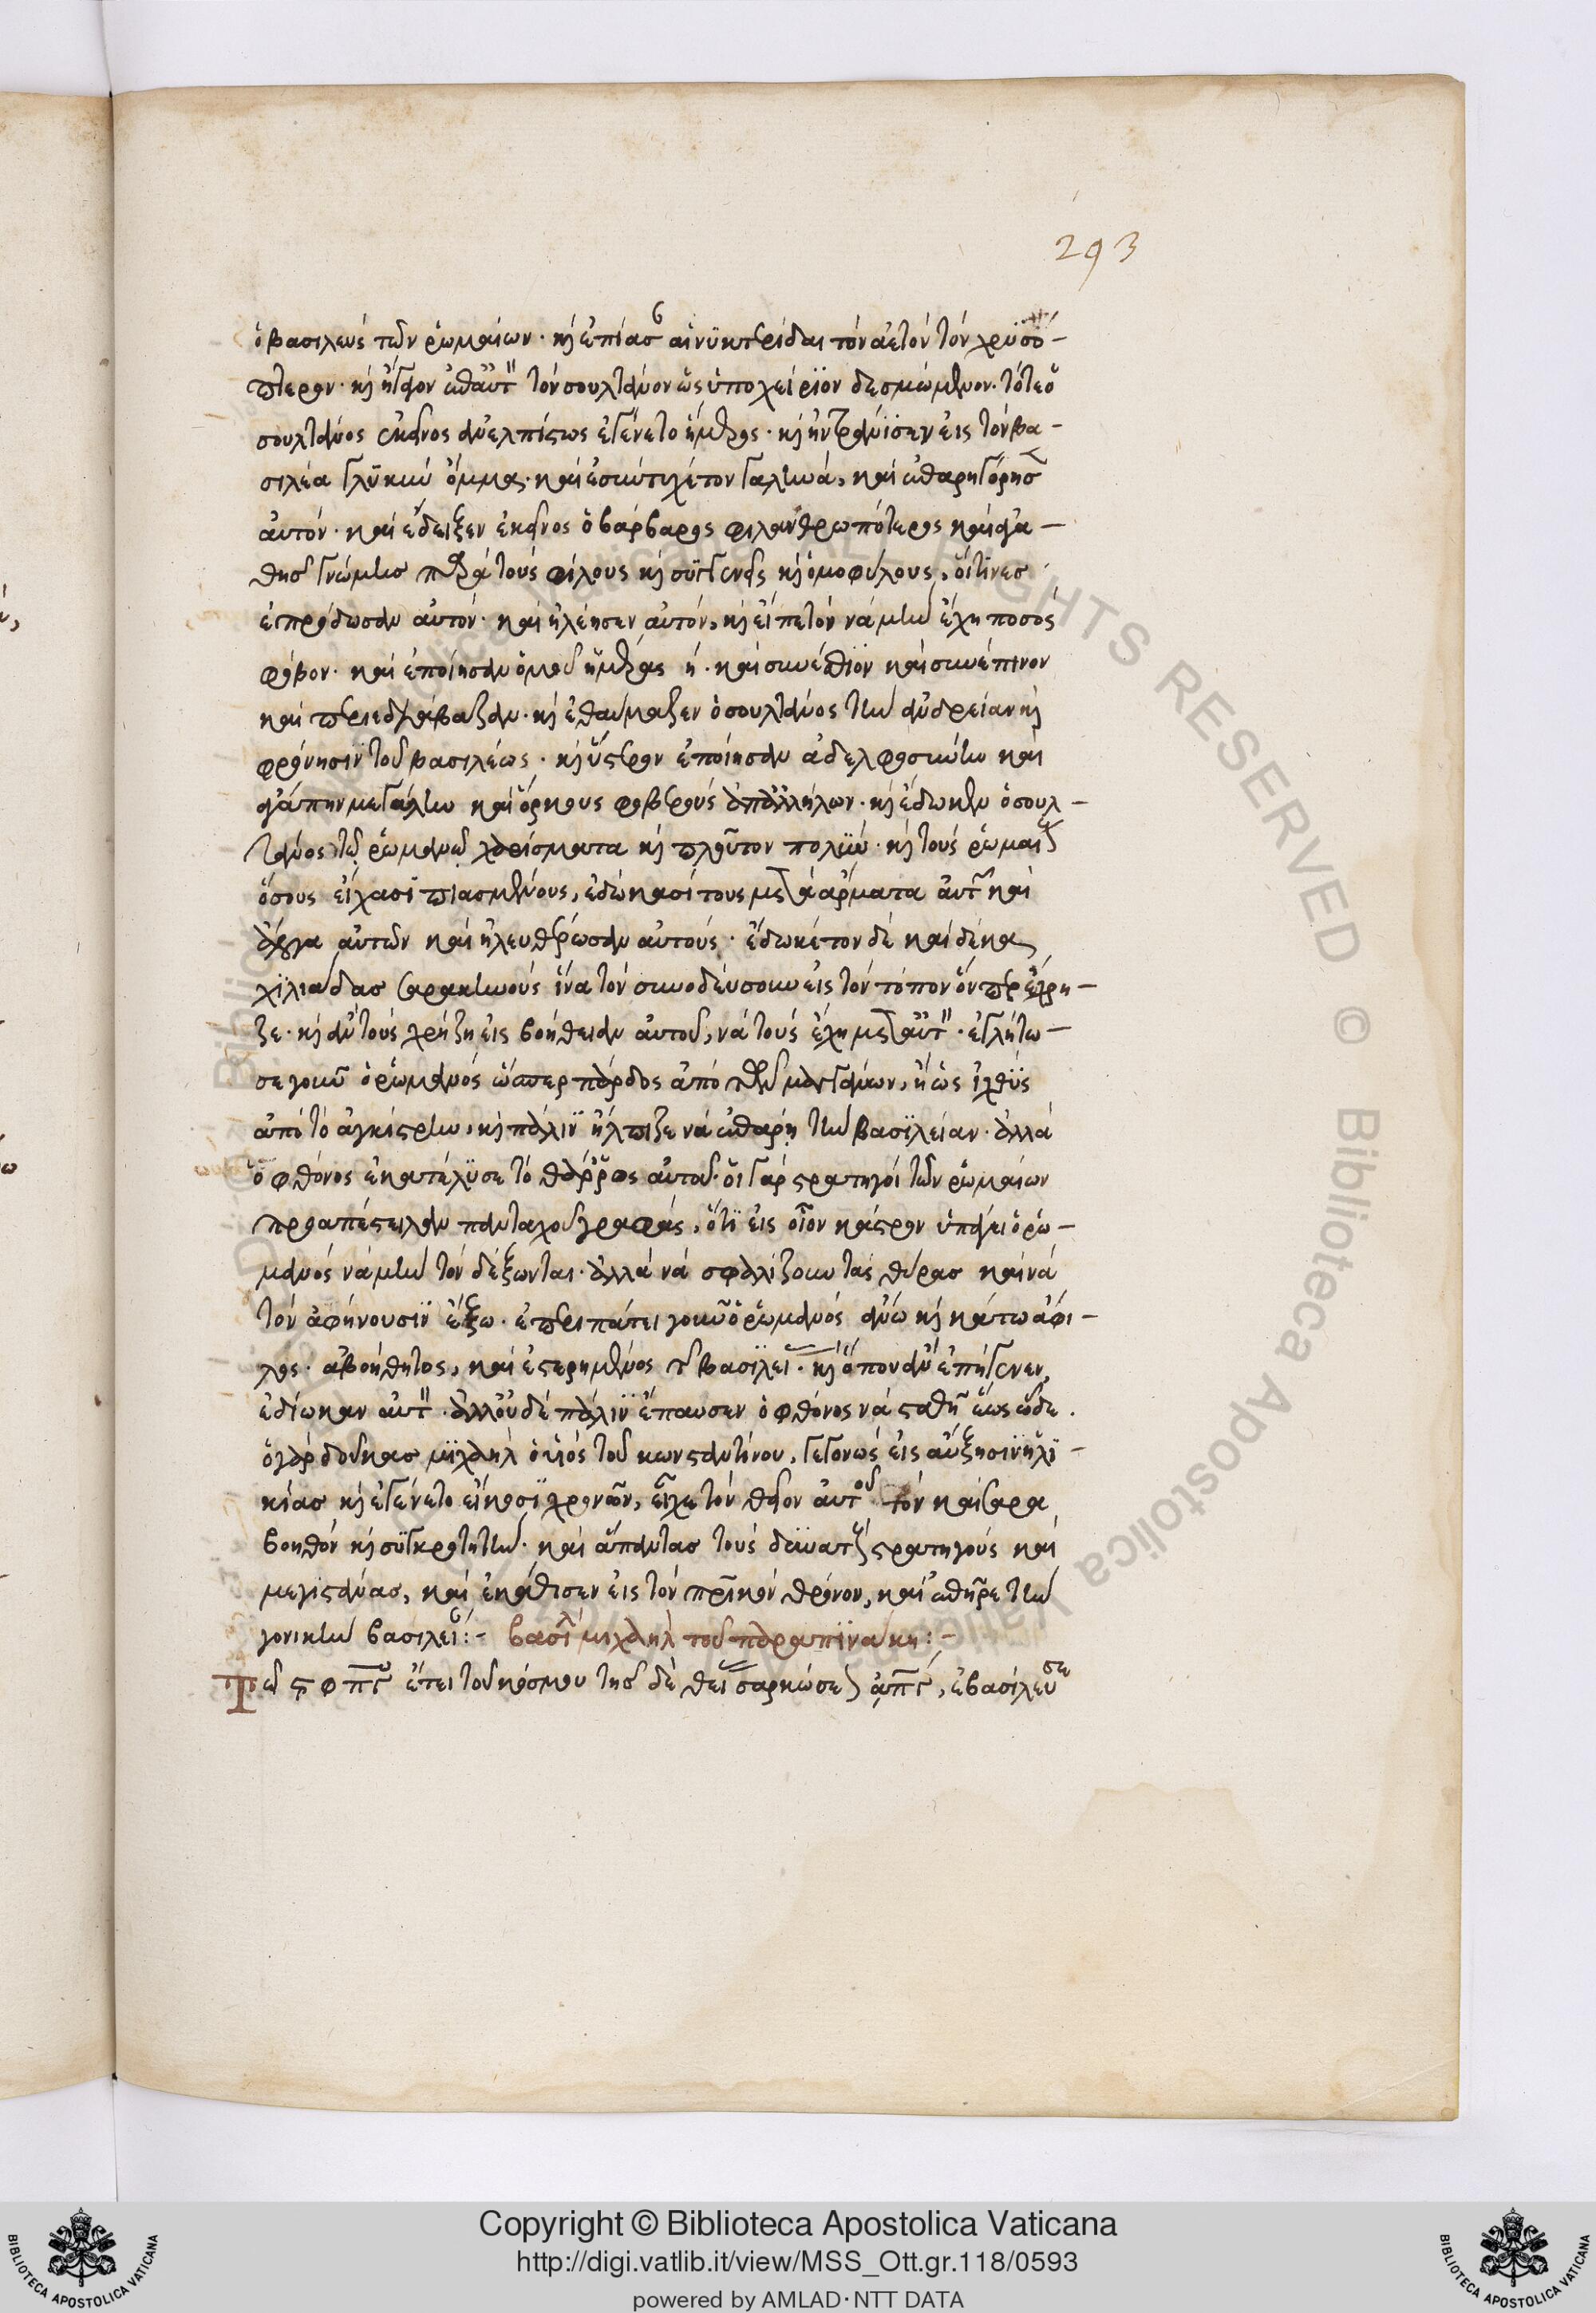 293
ὁ βασιλεὺς τῶν ῥωμαίων · κ(αὶ) ἐπίασ(εν) αἱ νϋκτερίδαι τὸν ἀετὸν τὸν χρϋσό-
πτερον · κ(αὶ) ἦγον αὐτ(ὸν) τὸν σουλτάνον ὡς ὑποχείρϊον δεσμώμενον · τότε ὁ
σουλτάνος ἐκεῖνος ἀνελπίστως ἐγένετο ἥμερος · κ(αὶ) εἰς τὸν βα-
σιλέα γλϋκὺν ὄμμα · καὶ ἐσυντιχέ τον γαληνά, καὶ ἐπαρηγόρησ(εν)
αὐτόν · καὶ ἔδειξεν ἐκεῖνος ὁ βάρβαρος φιλανθρωπότερος καὶ ἀγα-
θῆς γνώμης παρὰ τοὺς φίλους κ(αὶ) συγγενεῖς κ(αὶ) ὁμοφύλους, οἵτϊνες
ἐπρόδωσαν αὐτόν · καὶ ἠλέησεν αὐτόν, κ(αὶ) εἶπε τὸν νὰ μὴν ἔχη ποσῶς
φόβον · καὶ ἐποίησαν ὁμοῦ ἡμέρας η · καὶ συνέσθϊον καὶ συνέπινον
καὶ περιεδιάβαζαν · κ(αὶ) ἐθαύμαζεν ὁ σουλτάνος τὴν ἀνδρείαν κ(αὶ)
φρόνησϊν τοῦ βασιλέως · κ(αὶ) ὕστερον ἐποίησαν ἀδελφοσύνην καὶ
ἀγάπην μεγάλην καὶ ὅρκους φοβεροὺς ἀπαλλήλων · κ(αὶ) ἔδωκεν ὁ σουλ-
τάνος τῷ ῥωμανῷ χαρίσματα κ(αὶ) πλοῦτον πολϋν · κ(αὶ) τοὺς ῥωμαί(ους)
ὅσους εἴχασϊ πιασμένους, ἐδώκασί τους μετὰ ἄρματα αὐτ(ῶν) καὶ
ἄλογα αὐτῶν καὶ ἠλευθέρωσαν αὐτούς · ἔδωκέ τον δὲ καὶ δέκα
χϊλιάδας σαρακηνοὺς ἵνα τὸν συνοδεύσουν εἰς τὸν τόπον ὃν ἔχρη-
ζε · κ(αὶ) ἂν τοὺς χρήζη εἰς βοήθειαν αὐτοῦ, νὰ τοὺς ἔχη μετ' αὐτ(όν) · ἐγλήτω-
σε γοῦν ὁ ῥωμανὸς ὥσπερ πάρδος ἀπὸ τῶν μαγγάνων, ἢ ὡς ἰχθϋς
ἀπὸ τὸ ἀγκίστρην, κ(αὶ) πάλιν ἤλπιζε νὰ ἐπάρη τὴν βασϊλείαν · ἀλλὰ
ὁ φθόνος ἐκατέλϋσε τὸ θάρρος αὐτοῦ · οἱ γὰρ στρατηγοὶ τῶν ῥωμαίων
προαπέστειλαν πανταχοῦ γραφάς, ὅτϊ εἰς οἷον κάστρον ὑπάγει ὁ ῥω-
μανὸς νὰ μὴν τὸν δέξωνται · ἀλλὰ νὰ σφαλίζουν τὰς θύρας καὶ νὰ
τὸν ἀφήνουσϊν ἔξω · ἐπεριπάτει γοῦν ὁ ῥωμανὸς ἄνω κ(αὶ) κάτω ἄφι-
λος · ἀβοήθητος, καὶ ἐστερημένος τ(ῆς) βασϊλεί(ας) · κ(αὶ) ὅπου ἂν ἐπήγενεν,
ἐδίωκαν αὐτ(όν) · ἀλλ' οὐδὲ πάλϊν ἔπαυσεν ὁ φθόνος νὰ σταθῇ ἕως ὧδε ·
ὁ γὰρ δούκας μϊχαὴλ ὁ υἱὸς τοῦ κωνσταντίνου, γεγονὼς εἰς αὔξησιν ἡλϊ-
κίας κ(αὶ) ἐγένετο εἴκοσϊ χρονῶν, εἶχε τὸν θεῖον αὐτοῦ τὸν καίσαρα
βοηθὸν κ(αὶ) συγκροτητὴν · καὶ ἅπαντας τοὺς δϋνατ(οὺς) στρατηγοὺς καὶ
μεγιστάνας, καὶ ἐκάθισεν εἰς τὸν πατρικὸν θρόνον, καὶ ἐπῆρε τὴν
γονικὴν βασιλεί(αν) :- βασιλ(εία) μιχαὴλ τοῦ παραπϊνάκη :-
Τῷ ςφπς ἔτει τοῦ κόσμου τῆς δὲ θεί(ας) σαρκώσε(ως) ͵απς, ἐβασίλευσε
Copyright © Biblioteca Apostolica Vaticana
http://digi.vatlib.it/view/MSS_Ott.gr.118/0593
powered by AMLAD·NTT DATA